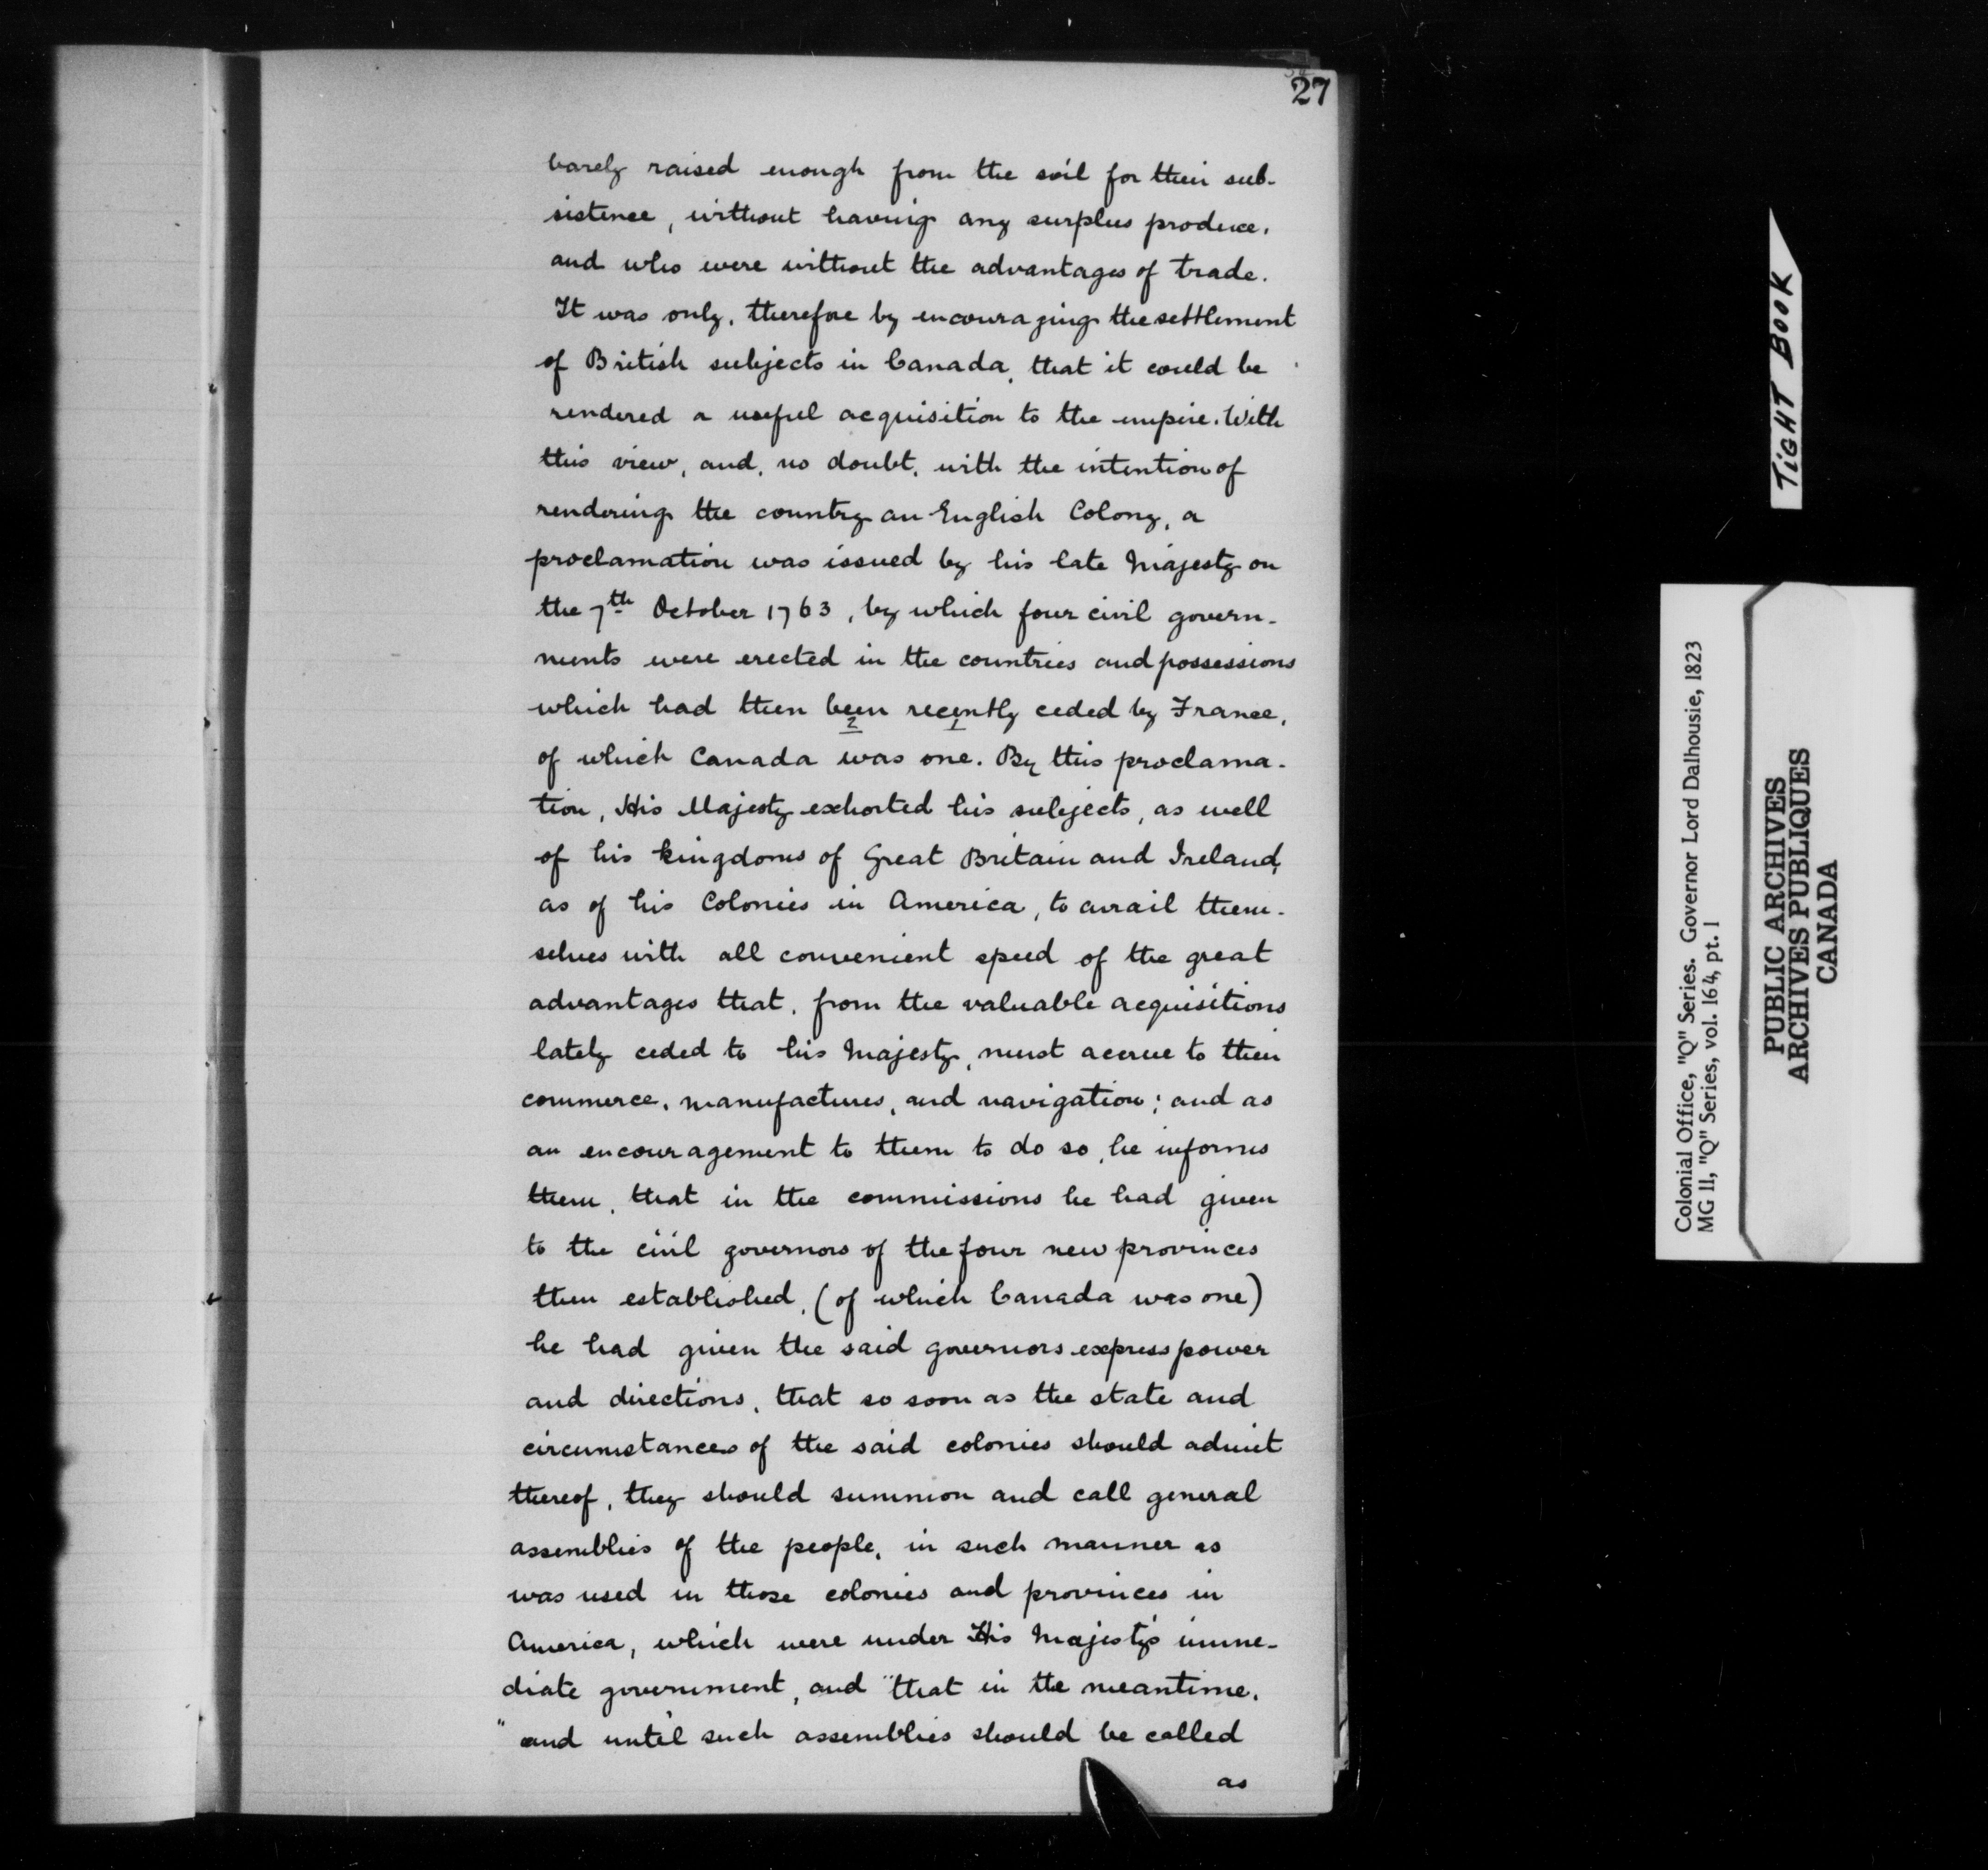 27
barely raised enough from the soil for their sub-
sistence, without having any surplus produce,
and who were without the advantages of trade.
It was only, therefore by encouraging the settlement
of British subjects in Canada, that it could be
rendered a useful acquisition to the empire. With
this view, and, no doubt, with the intention of
rendering the country an English Colony, a
proclamation was issued by his late Majesty on
the 7th October 1763, by which four civil govern-
ments were erected in the countries and possessions
which had then been recently ceded by France,
2 1
of which Canada was one. By this proclama-
tion, His Majesty exhorted his subjects, as well
of his kingdoms of Great Britain and Ireland,
as of his Colonies in America, to avail them-
selves with all convenient speed of the great
advantages that, from the valuable acquisitions
lately ceded to his Majesty, must accrue to their
commerce, manufactures, and navigation; and as
an encouragement to them to do so, he informs
them, that in the commissions he had given
to the civil governors of the four new provinces
then established, (of which Canada was one)
he had given the said governors express power
and directions, that so soon as the state and
circumstances of the said colonies should admit
thereof, they should summon and call general
assemblies of the people, in such manner as
was used in those colonies and provinces in
America, which were under His Majesty's imme-
diate government, and "that in the meantime,
"and until such assemblies should be called
as
TIGHT BOOK
Colonial Office, "Q" Series. Governor Lord Dalhousie, 1823
MG 11, "Q" Series, vol. 164, pt. 1
PUBLIC ARCHIVES
ARCHIVES PUBLIQUES
CANADA